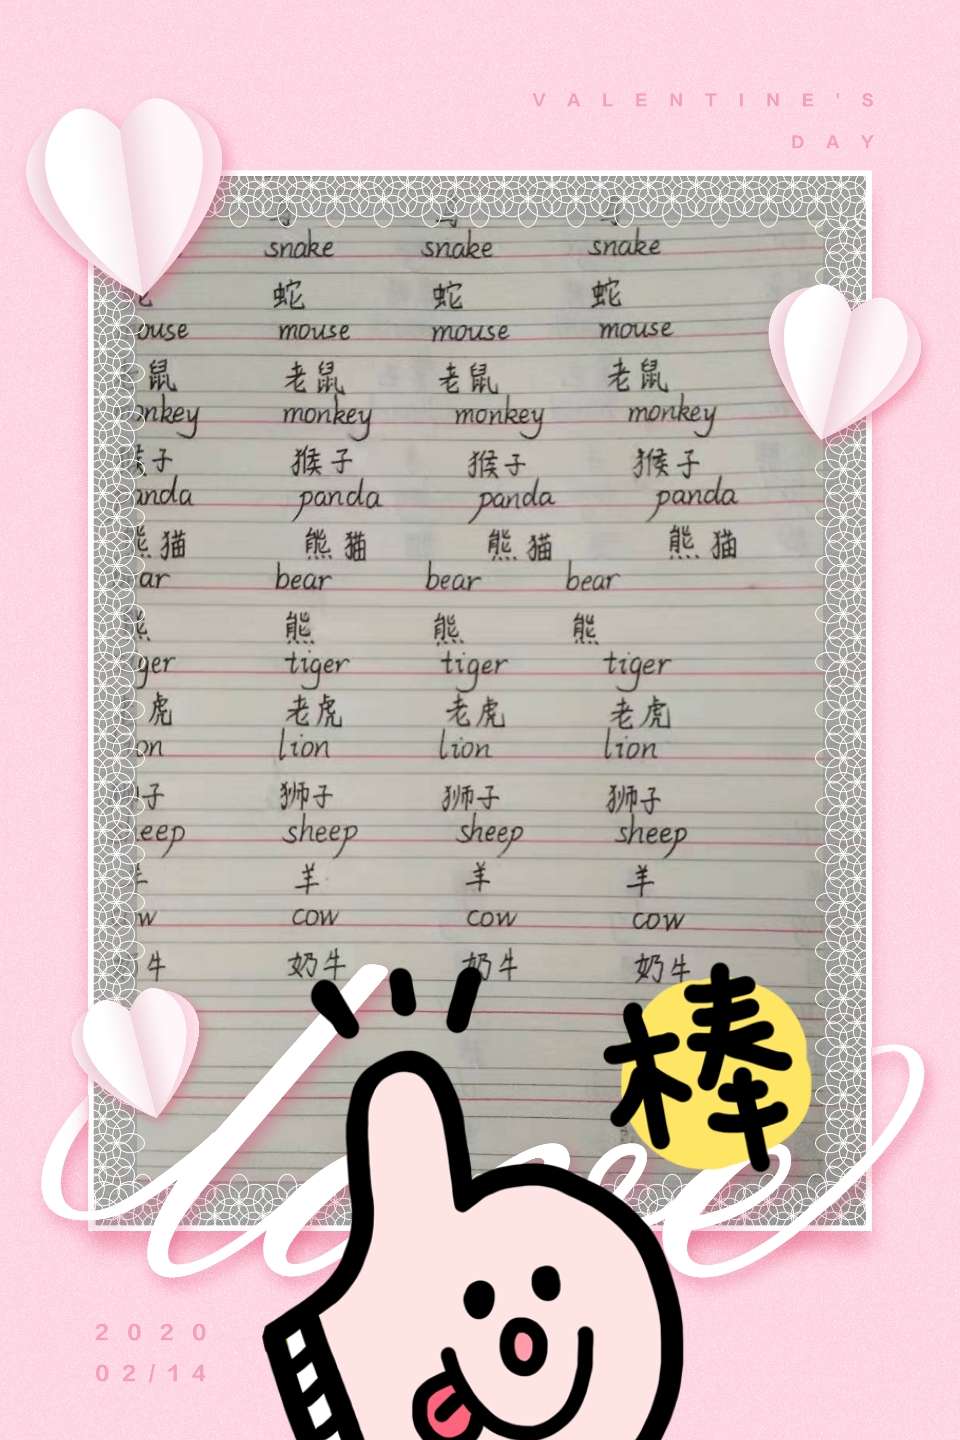 VALENTINE'S
DAY
snake snake snake
蛇 蛇 蛇
mouse mouse mouse
鼠 老鼠 老鼠 老鼠
monkey monkey monkey
子 猴子 猴子 猴子
panda panda panda
猫 熊猫 熊猫 熊猫
bear bear bear
熊 熊 熊
tiger tiger tiger
虎 老虎 老虎 老虎
lion lion lion
子 狮子 狮子 狮子
sheep sheep sheep
羊 羊 羊
cow cow cow
牛 奶牛 奶牛 奶牛
棒
love
2020
02/14